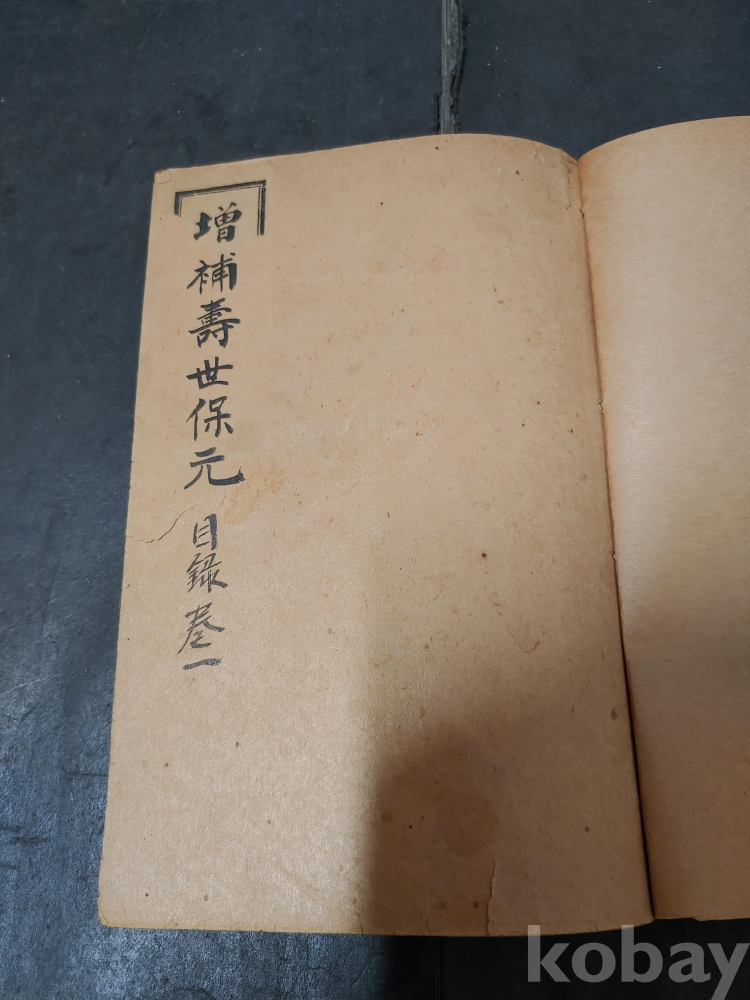 增補壽世保元 目錄 卷一
kobay